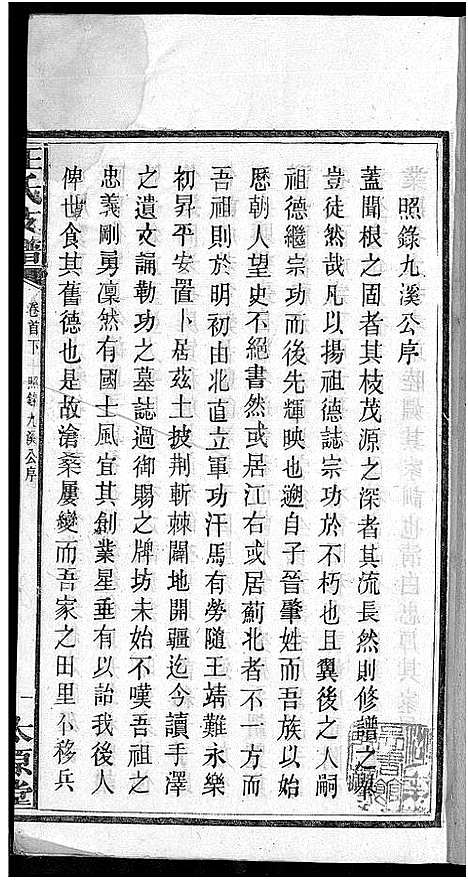 照錄九溪公序
蓋聞根之固者其枝茂源之深者其流長然則修譜之舉
豈徒然哉凡以揚祖德誌宗功於不朽也且翼後之人嗣
祖德繼宗功而後先輝映也遡自子晉肇姓而吾族以始
歷朝人望史不絕書然或居江右或居薊北者不一方
吾祖則於明初由北直立軍功汗馬有勞隨王靖難永樂
初昇平安置卜居茲土披荆斬棘闢地開疆迄今讀手澤
之遺文誦勒功之墓誌過御賜之牌坊未始不嘆吾祖之
忠義剛勇凜然有國士風宜其創業星垂有以詒我後人
俾世食其舊德也是故滄桑屢變而吾家之田里不移兵
王氏支譜
卷首下
照錄九溪公序
一
太原堂